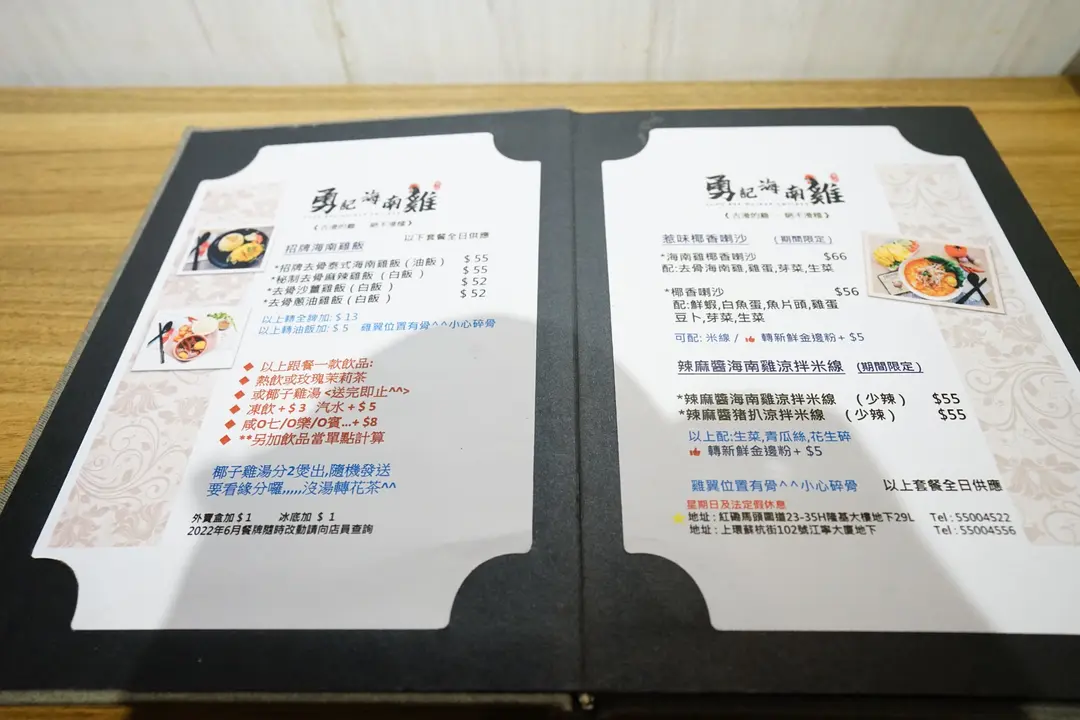 勇記海南雞
招牌海南雞飯
以下套餐全日供應
*招牌去骨泰式海南雞飯(油飯) $ 55
*秘制去骨麻辣雞飯(白飯) $ 55
*去骨沙薑雞飯(白飯) $ 52
*去骨蔥油雞飯(白飯) $ 52
以上轉全髀加: $ 13
以上轉油飯加: $ 5 雞翼位置有骨^^小心碎骨
◆ 以上跟餐一款飲品:
◆ 熱飲或玫瑰茉莉茶
◆ 或椰子雞湯 <送完即止^^>
◆ 凍飲+$ 3 汽水+$ 5
◆ 咸O七/O樂/O賓...+ $8
◆ **另加飲品當單點計算
椰子雞湯分2煲出,隨機發送
要看緣分囉,,,,,沒湯轉花茶^^
外賣盒加$ 1 冰底加 $ 1
2022年6月餐牌隨時改動請向店員查詢
勇記海南雞
惹味椰香喇沙 (期間限定)
*海南雞椰香喇沙 $66
配:去骨海南雞,雞蛋,芽菜,生菜
*椰香喇沙 $56
配:鮮蝦,白魚蛋,魚片頭,雞蛋
豆卜,芽菜,生菜
可配: 米線 / 轉新鮮金邊粉+ $5
辣麻醬海南雞涼拌米線 (期間限定)
*辣麻醬海南雞涼拌米線 (少辣) $55
*辣麻醬豬扒涼拌米線 (少辣) $55
以上配:生菜,青瓜絲,花生碎
轉新鮮金邊粉+ $5
雞翼位置有骨^^小心碎骨 以上套餐全日供應
星期日及法定假休息
地址:紅磡馬頭圍道23-35H隆基大樓地下29L Tel : 55004522
地址:上環蘇杭街102號江寧大廈地下 Tel : 55004556